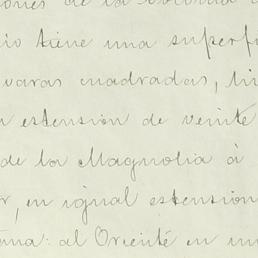 ones de la
io tiene una superf
varas cuadradas, li
n estension de veinte
de la Magnolia à
r, en igual estension
ana: al Oriente en un